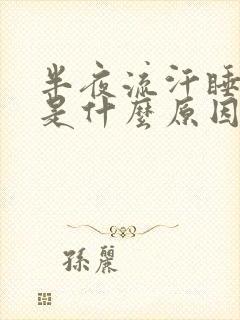 半夜流汗睡
是什麼原因
孫麗